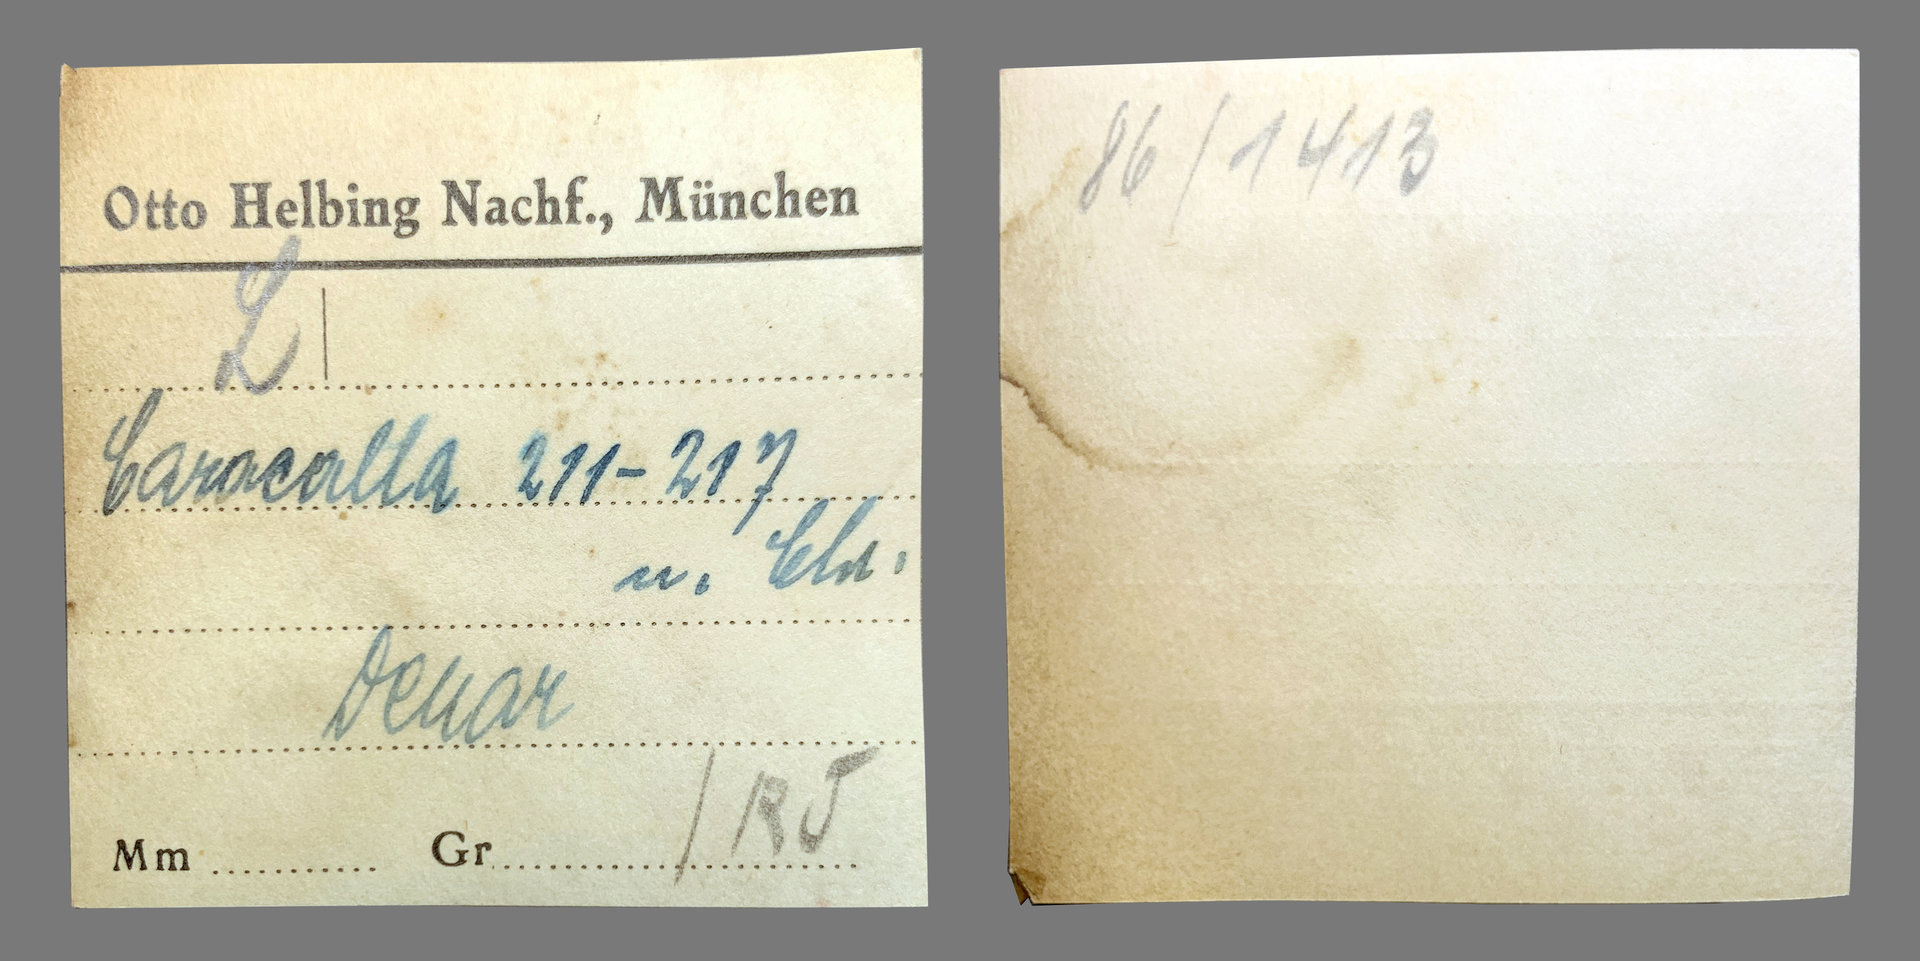 Otto Helbing Nachf., München
L
Caracalla 211-217
u.
Denar
Mm Gr / RJ
86/1413